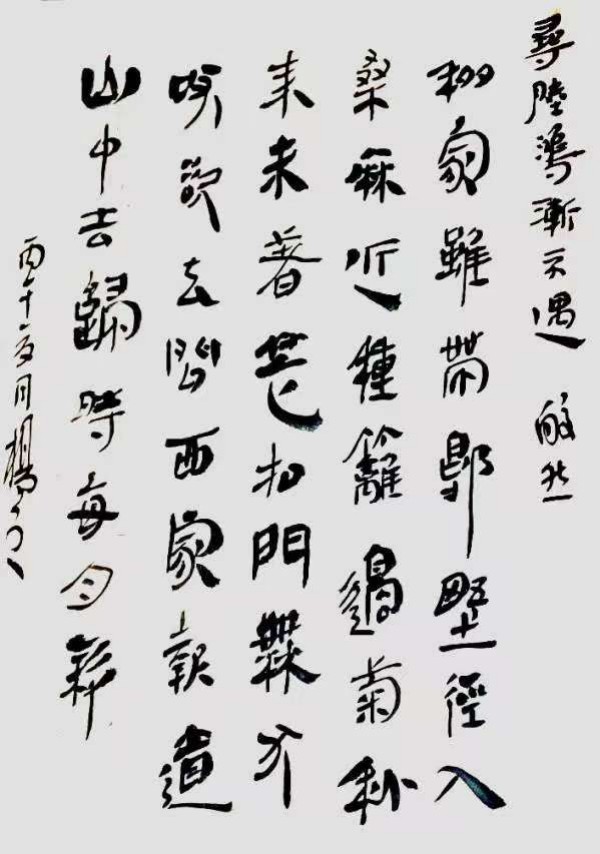 尋陸鴻漸不遇 皎然
移家雖帶郭野徑入
桑麻近種籬邊菊秋
來未著花扣門無犬
吠欲去問西家報道
山中去歸時每日斜
丙午夏月楊